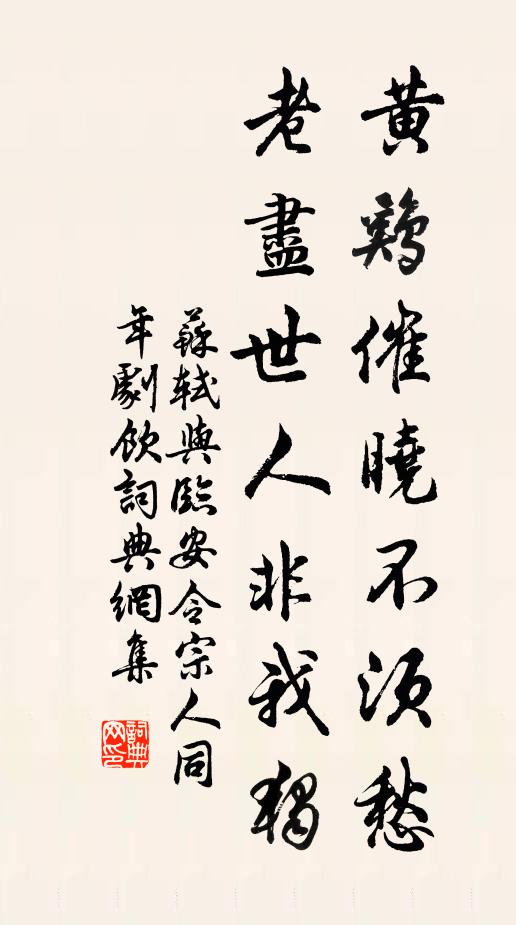 黃鷄催曉不須愁
老盡世人非我獨
蘇軾與臨安令宗人同
年劇飲詞典網集
詞典
网印